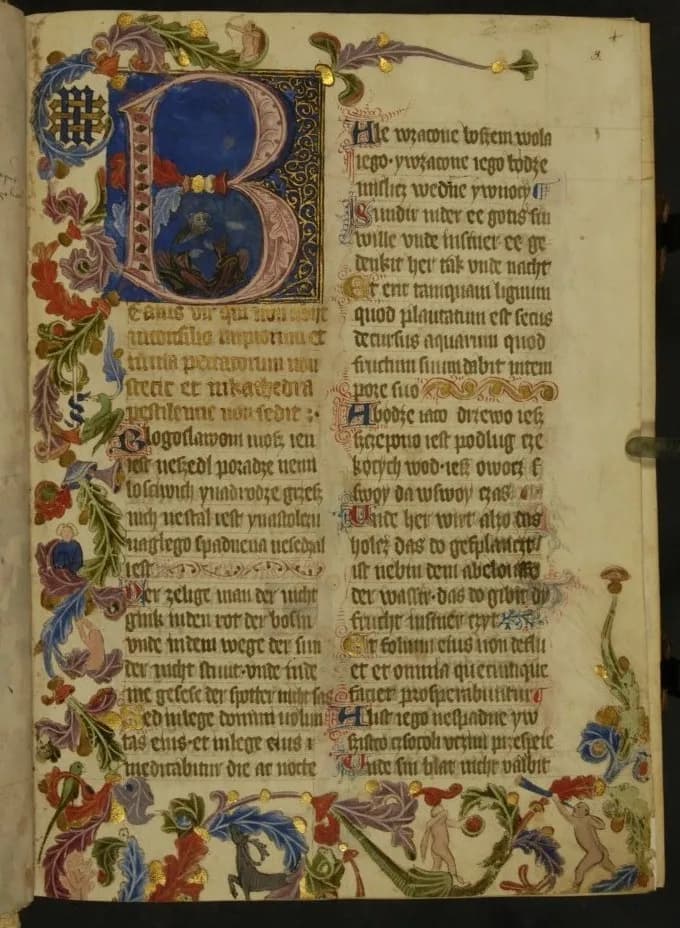 B
eatus vir qui non abijt
in consilio impiorum et
in uia peccatorum non
stetit et in kathedra
pestilencie non sedit :
Blogoslawoni møsz ien
iest ne szedl po radze nemi
losciwich y na drodze grzesz
nich ne stal iest y na stolczu
naglego spadneua ne sedzal
iest
Der zelige man der nicht
gink in den rot der bosin
vnde in dem wege der sun
der nicht stunt vnde in de
me gesese der spotter nicht sas
Sed in lege domini uolun
tas eius et in lege eius
meditabitur die ac nocte
Ale w zacone boszem wola
iego y w zacone iego bødze
mislicz we dne y w nocy
Sundir in der ee gotis sin
wille vnde in siner ee ge
denkit her tak vnde nacht
Et erit tamquam lignum
quod plantatum est secus
decursus aquarum quod
fructum suum dabit in tem
pore suo
A bødze iaco drzewo iesz
szczepiono iest podlug cze
køcych wod iesz owocz s
swoy da w swoy czas
Unde her wirt alzo das
holcz das do gesplanczt
ist nebin dem abeloufe
der wassir das do gibit dy
frucht in siner czyt
Et folium eius non deflu
et et omnia quecumque
faciet prosperabuntur
A list iego ne spadne y w
szistco czsocoli vczini prespeie
Unde sin blat nicht valbit